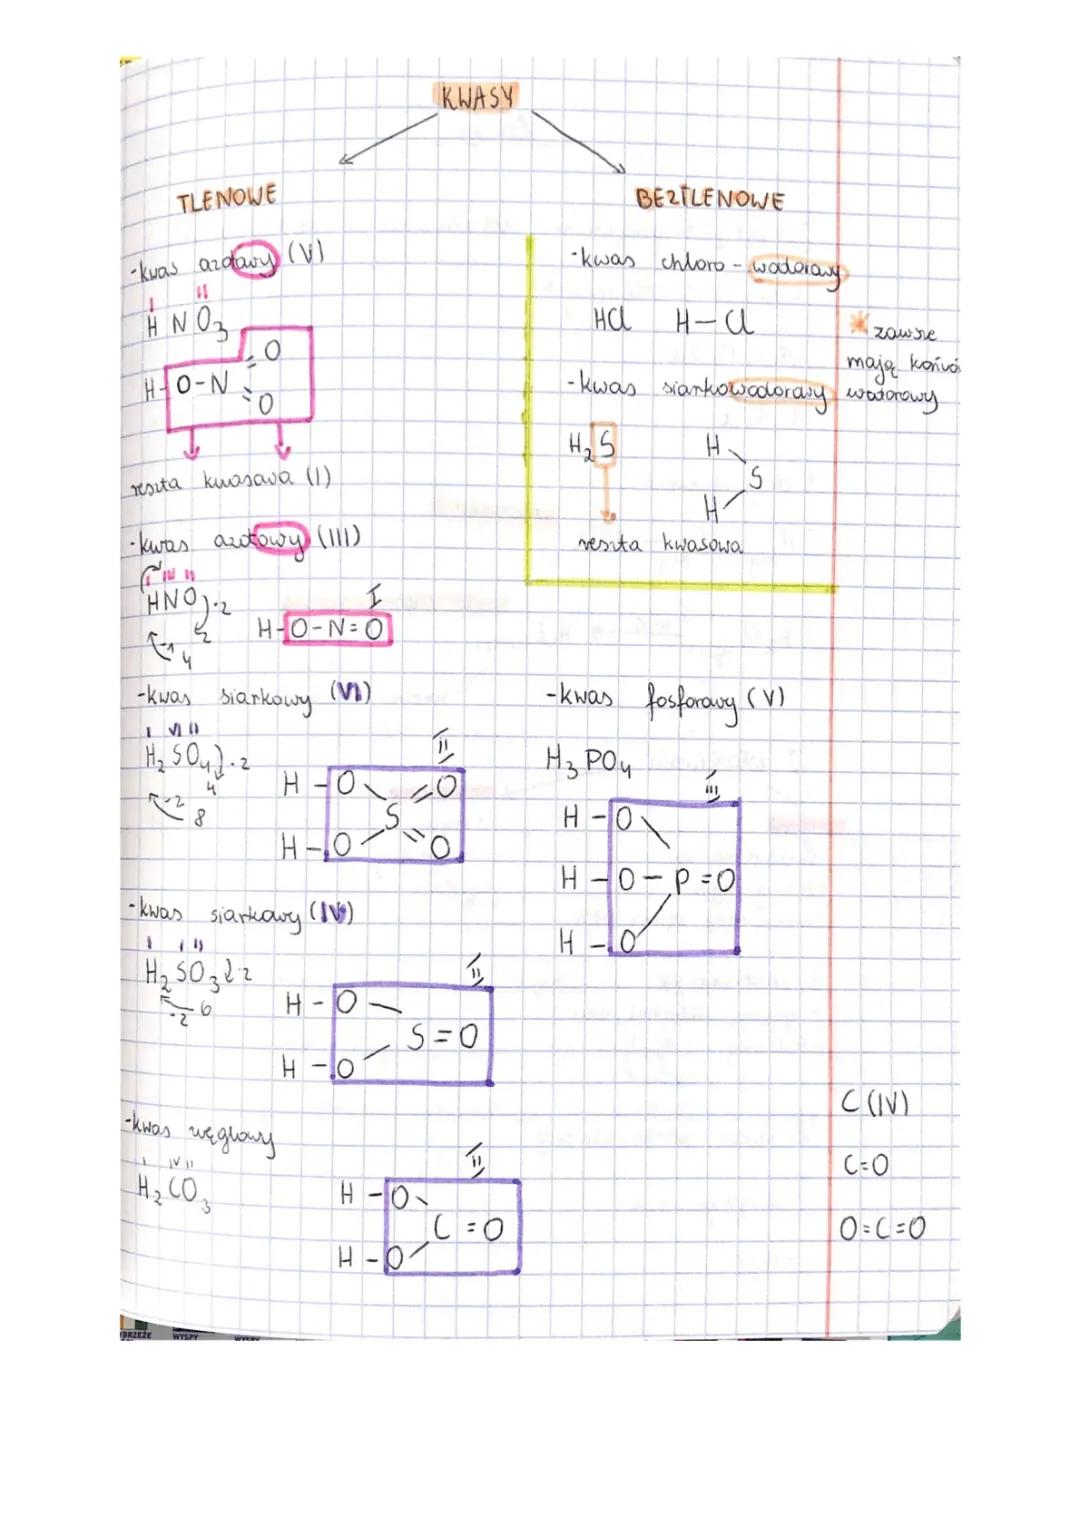 KWASY
TLENOWE
-kwas azotowy (V)
I II
H N O3
H-O-N=O
=O
reszta kwasowa (I)
-kwas azotowy (III)
I III II
HNO2 ·2
-1 4
I
H-O-N=O
-kwas siarkowy (VI)
I VI II
H2SO4 ·2
-2 8
II
H-O
S=O
H-O =O
-kwas siarkowy (IV)
H2SO3 ·2
-2 6
II
H-O
S=O
H-O
-kwas węglowy
I IV II
H2CO3
II
H-O
C=O
H-O
BEZTLENOWE
-kwas chloro-wodorowy
HCl H-Cl
-kwas siarkowodorowy
H2S
H
S
H
reszta kwasowa
zawsze
mają końcó
wodorowy
-kwas fosforowy (V)
H3PO4
III
H-O
H-O-P=O
H-O
C (IV)
C=O
O=C=O
WYSPY